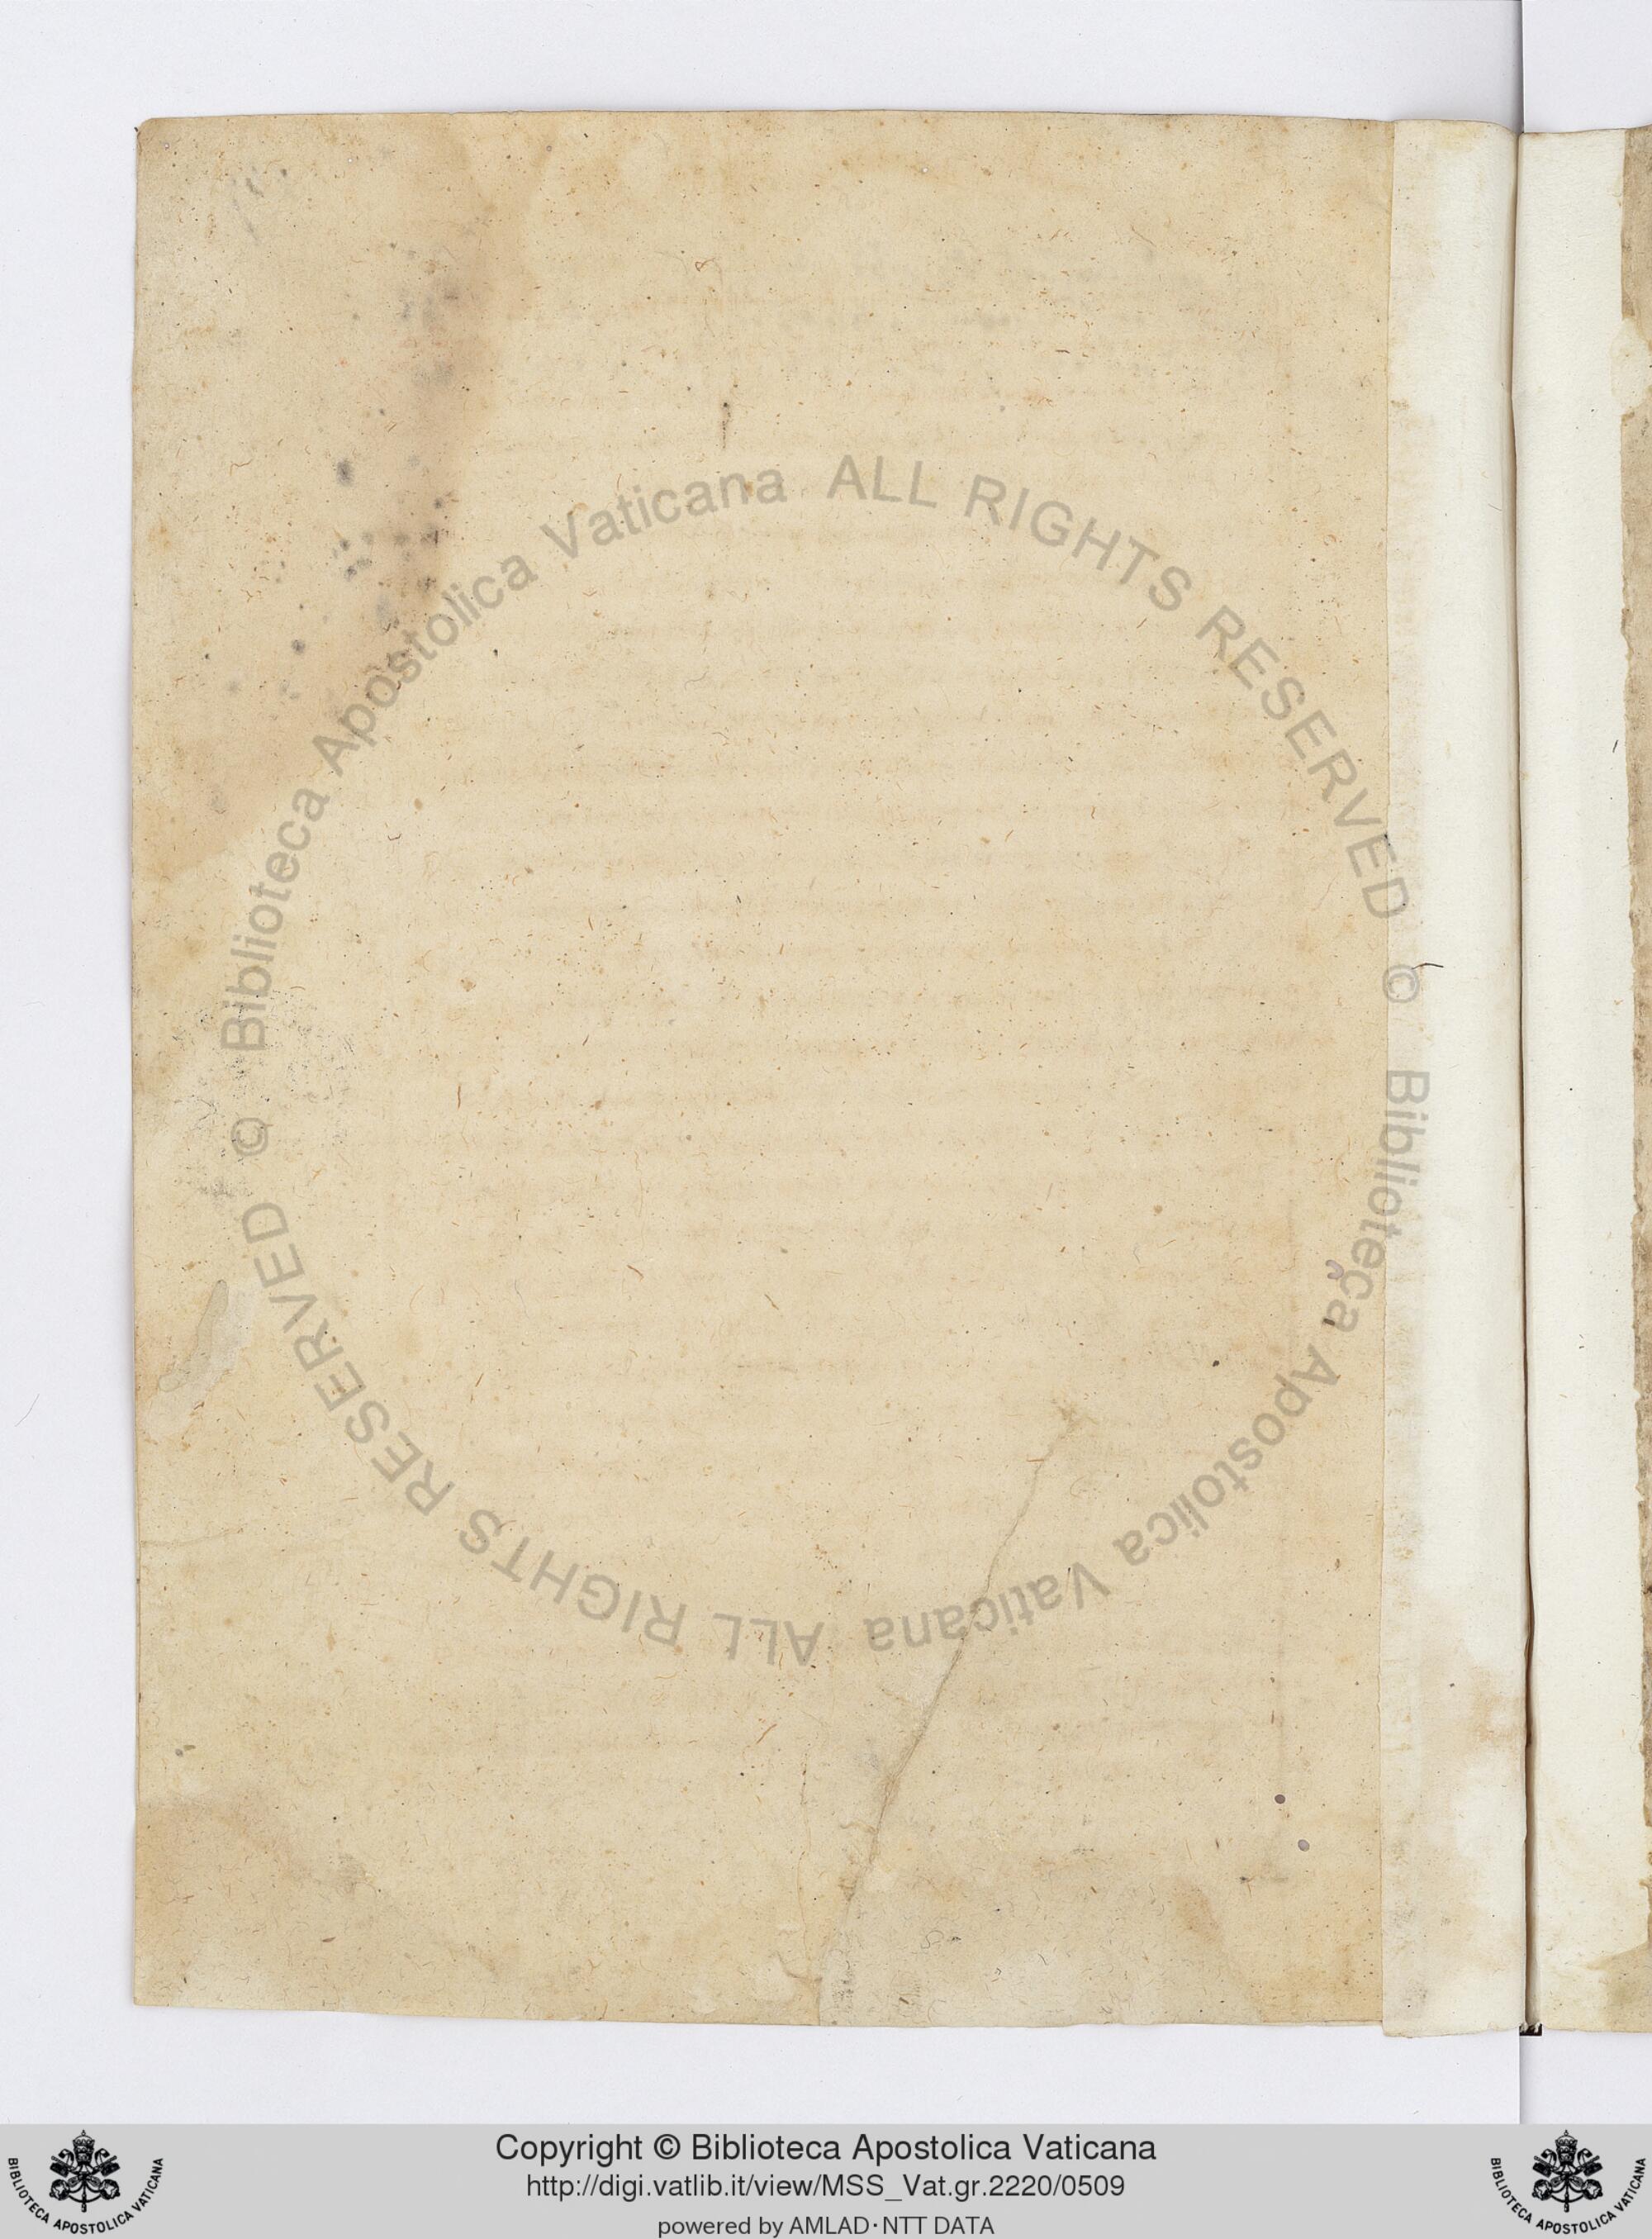 © Biblioteca Apostolica Vaticana ALL RIGHTS RESERVED © Biblioteca Apostolica Vaticana ALL RIGHTS RESERVED
Copyright © Biblioteca Apostolica Vaticana
http://digi.vatlib.it/view/MSS_Vat.gr.2220/0509
powered by AMLAD·NTT DATA
BIBLIOTECA APOSTOLICA VATICANA
BIBLIOTECA APOSTOLICA VATICANA